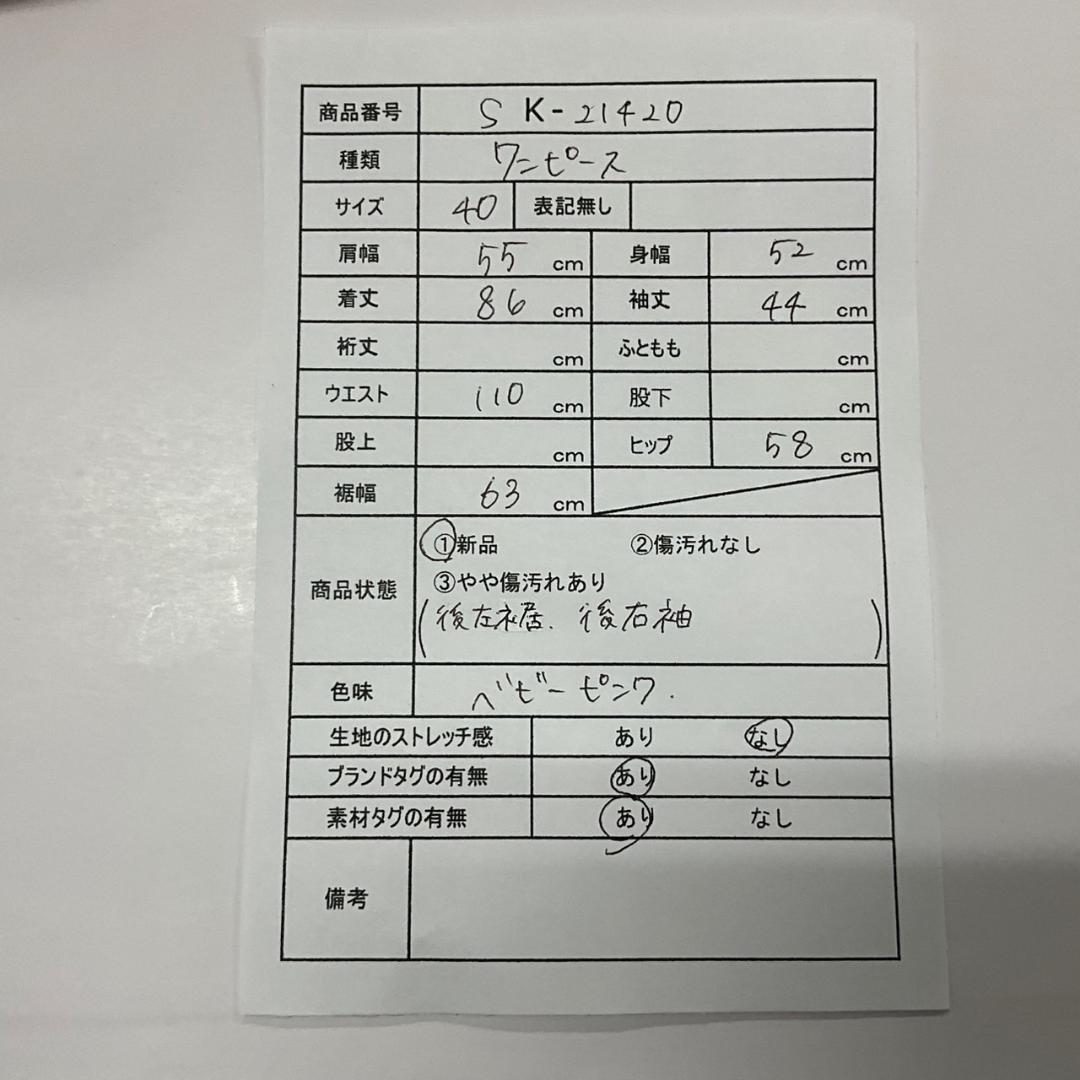 商品番号 S K-21420
種類 ワンピース
サイズ 40 表記無し
肩幅 55 cm 身幅 52 cm
着丈 86 cm 袖丈 44 cm
裄丈 cm ふともも cm
ウエスト 110 cm 股下 cm
股上 cm ヒップ 58 cm
裾幅 63 cm
①新品 ②傷汚れなし
商品状態 ③やや傷汚れあり
(後左裾、後右袖)
色味 ベビーピンク.
生地のストレッチ感 あり なし
ブランドタグの有無 あり なし
素材タグの有無 あり なし
備考